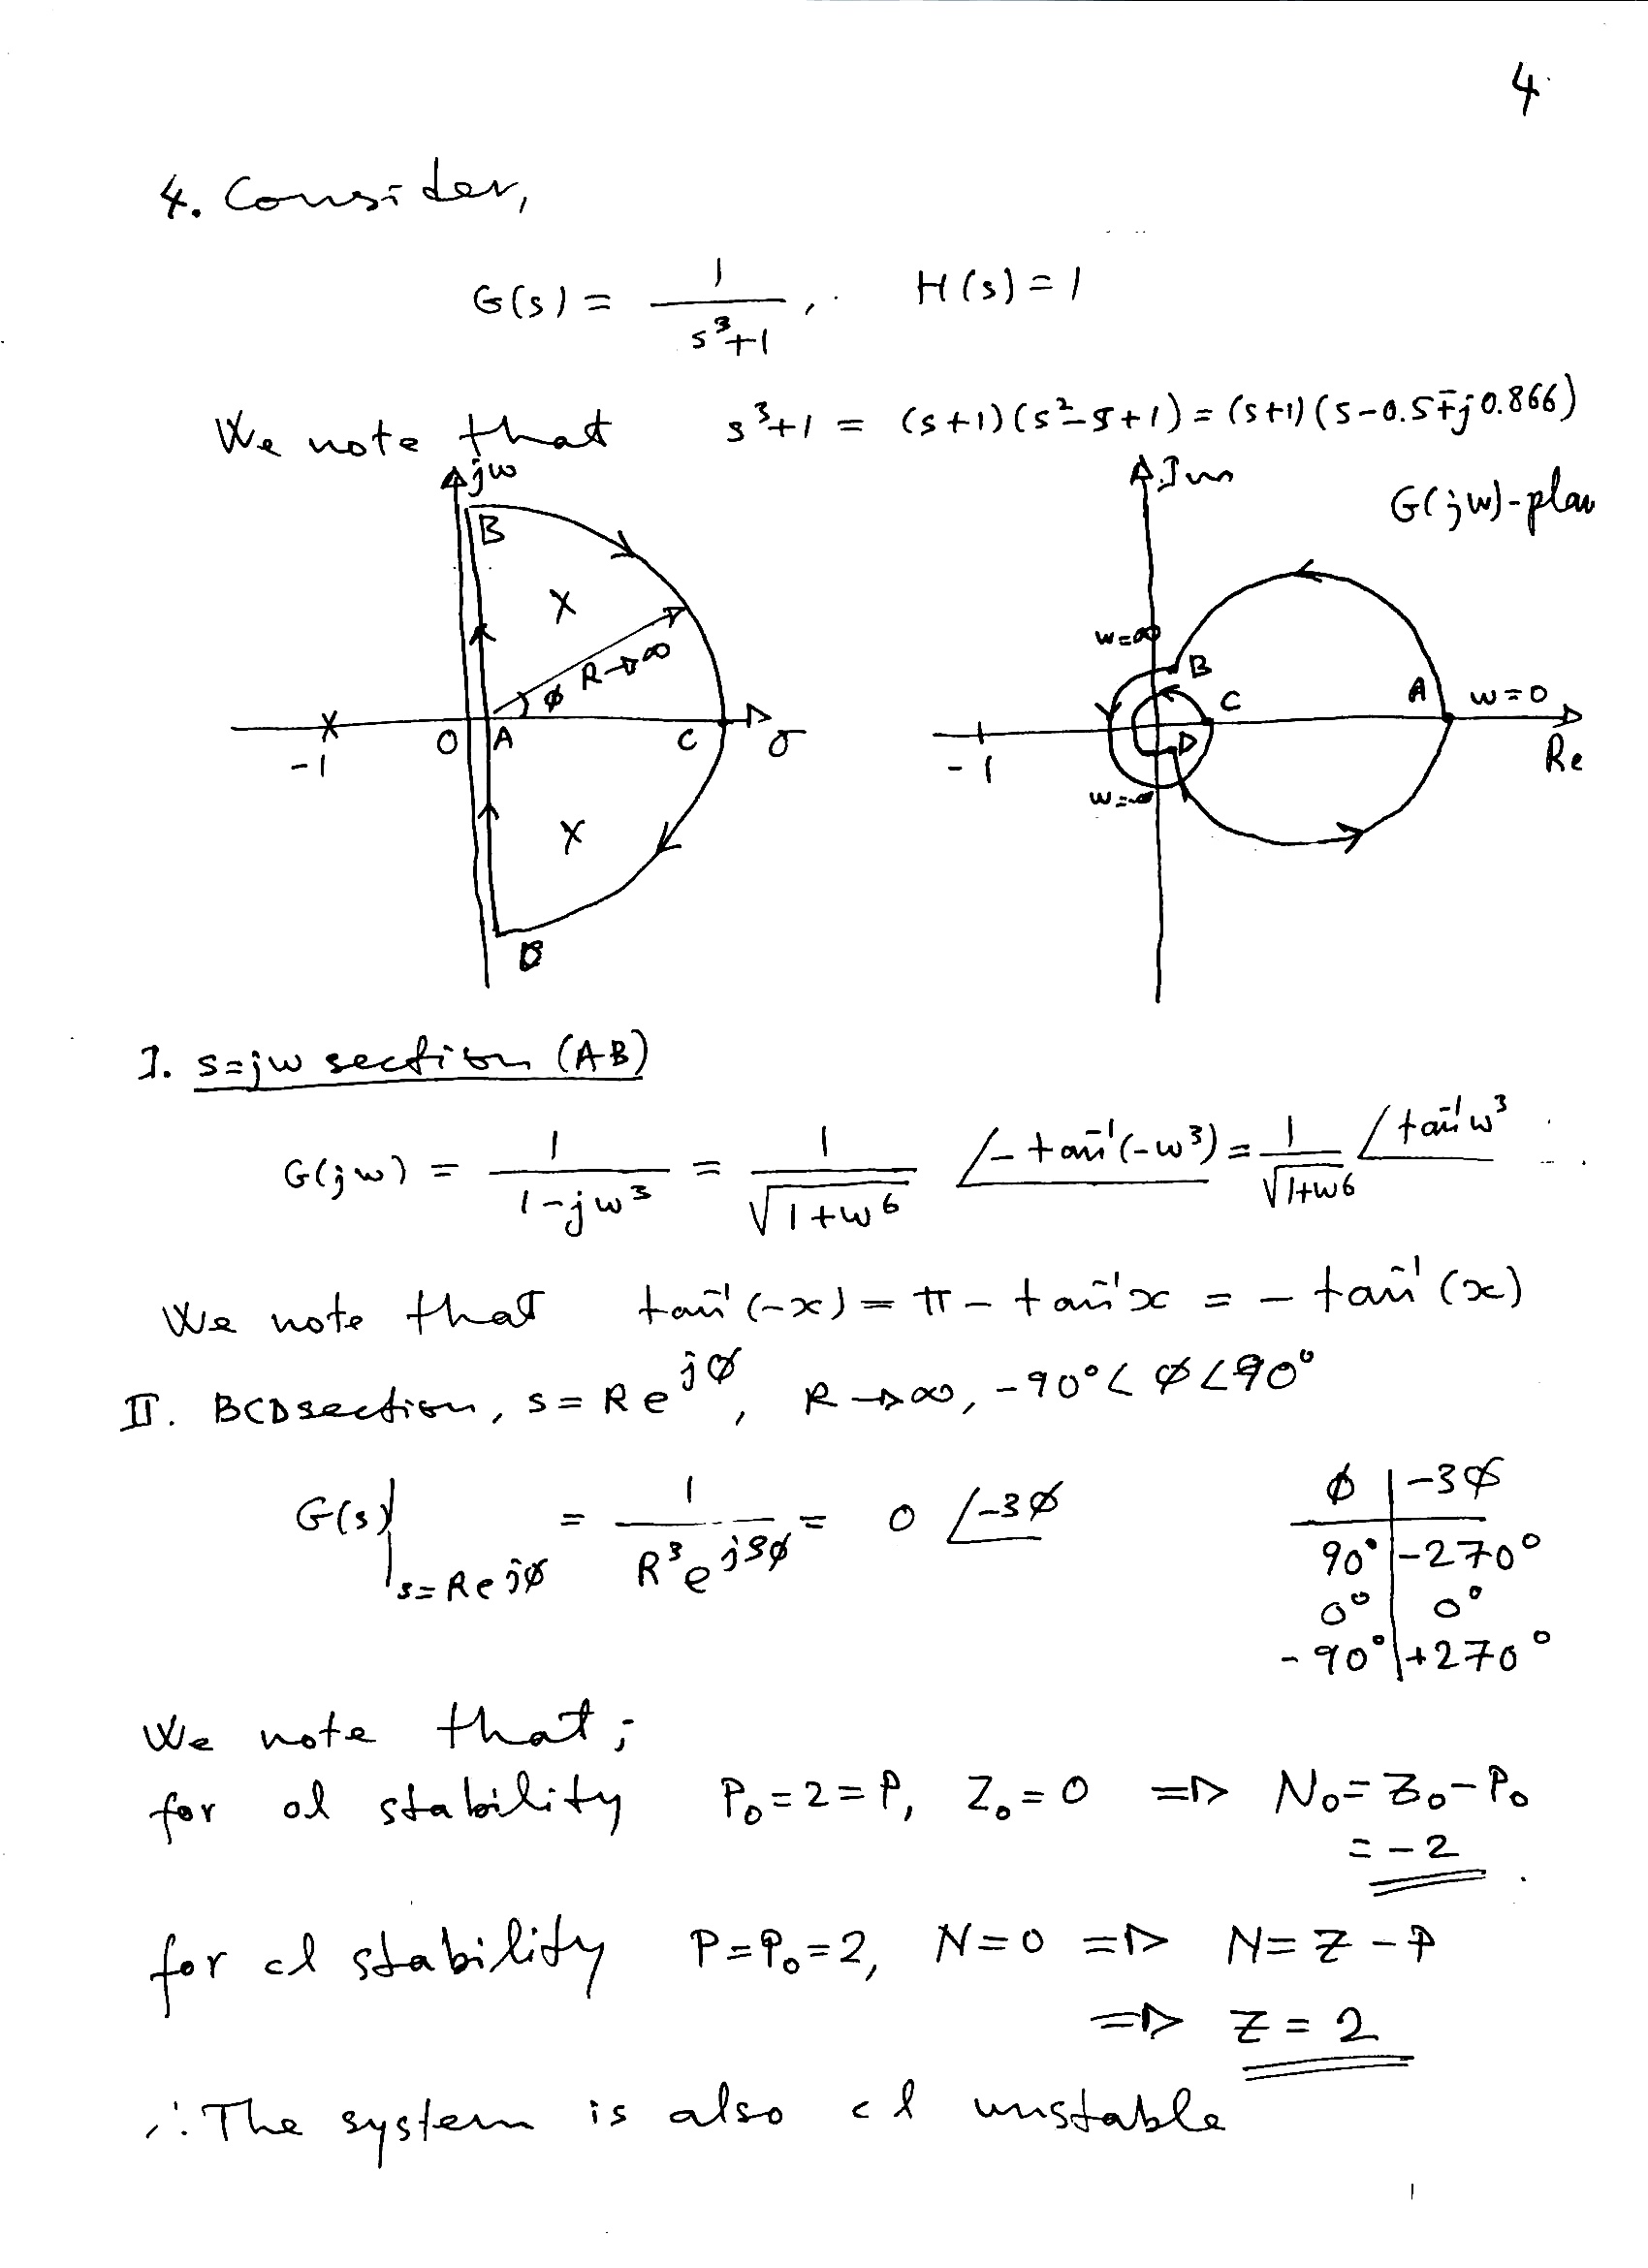 4
4. Consider,
G(s) = 1/(s³+1), H(s) = 1
We note that s³+1 = (s+1)(s²-s+1) = (s+1)(s-0.5∓j0.866)
jw
B
X
R→∞
φ
X
-1
O
A
C
σ
X
D
Im
G(jw)-plan
w=∞
B
C
A
w=0
-1
D
Re
w=-∞
I. s=jw section (AB)
G(jw) = 1/(1-jw³) = 1/√(1+w⁶) ∠-tan⁻¹(-w³) = 1/√(1+w⁶) ∠tan⁻¹w³
We note that tan⁻¹(-x) = π - tan⁻¹x = - tan⁻¹(x)
II. BCD section, s = Re^jφ, R→∞, -90° < φ < 90°
G(s)|s=Re^jφ = 1/(R³e^j3φ) = 0 ∠-3φ
φ | -3φ
90° | -270°
0° | 0°
-90° | +270°
We note that;
for ol stability P₀=2=P, Z₀=0 ⇒ N₀=Z₀-P₀
= -2
for cl stability P=P₀=2, N=0 ⇒ N=Z-P
⇒ Z=2
∴ The system is also cl unstable